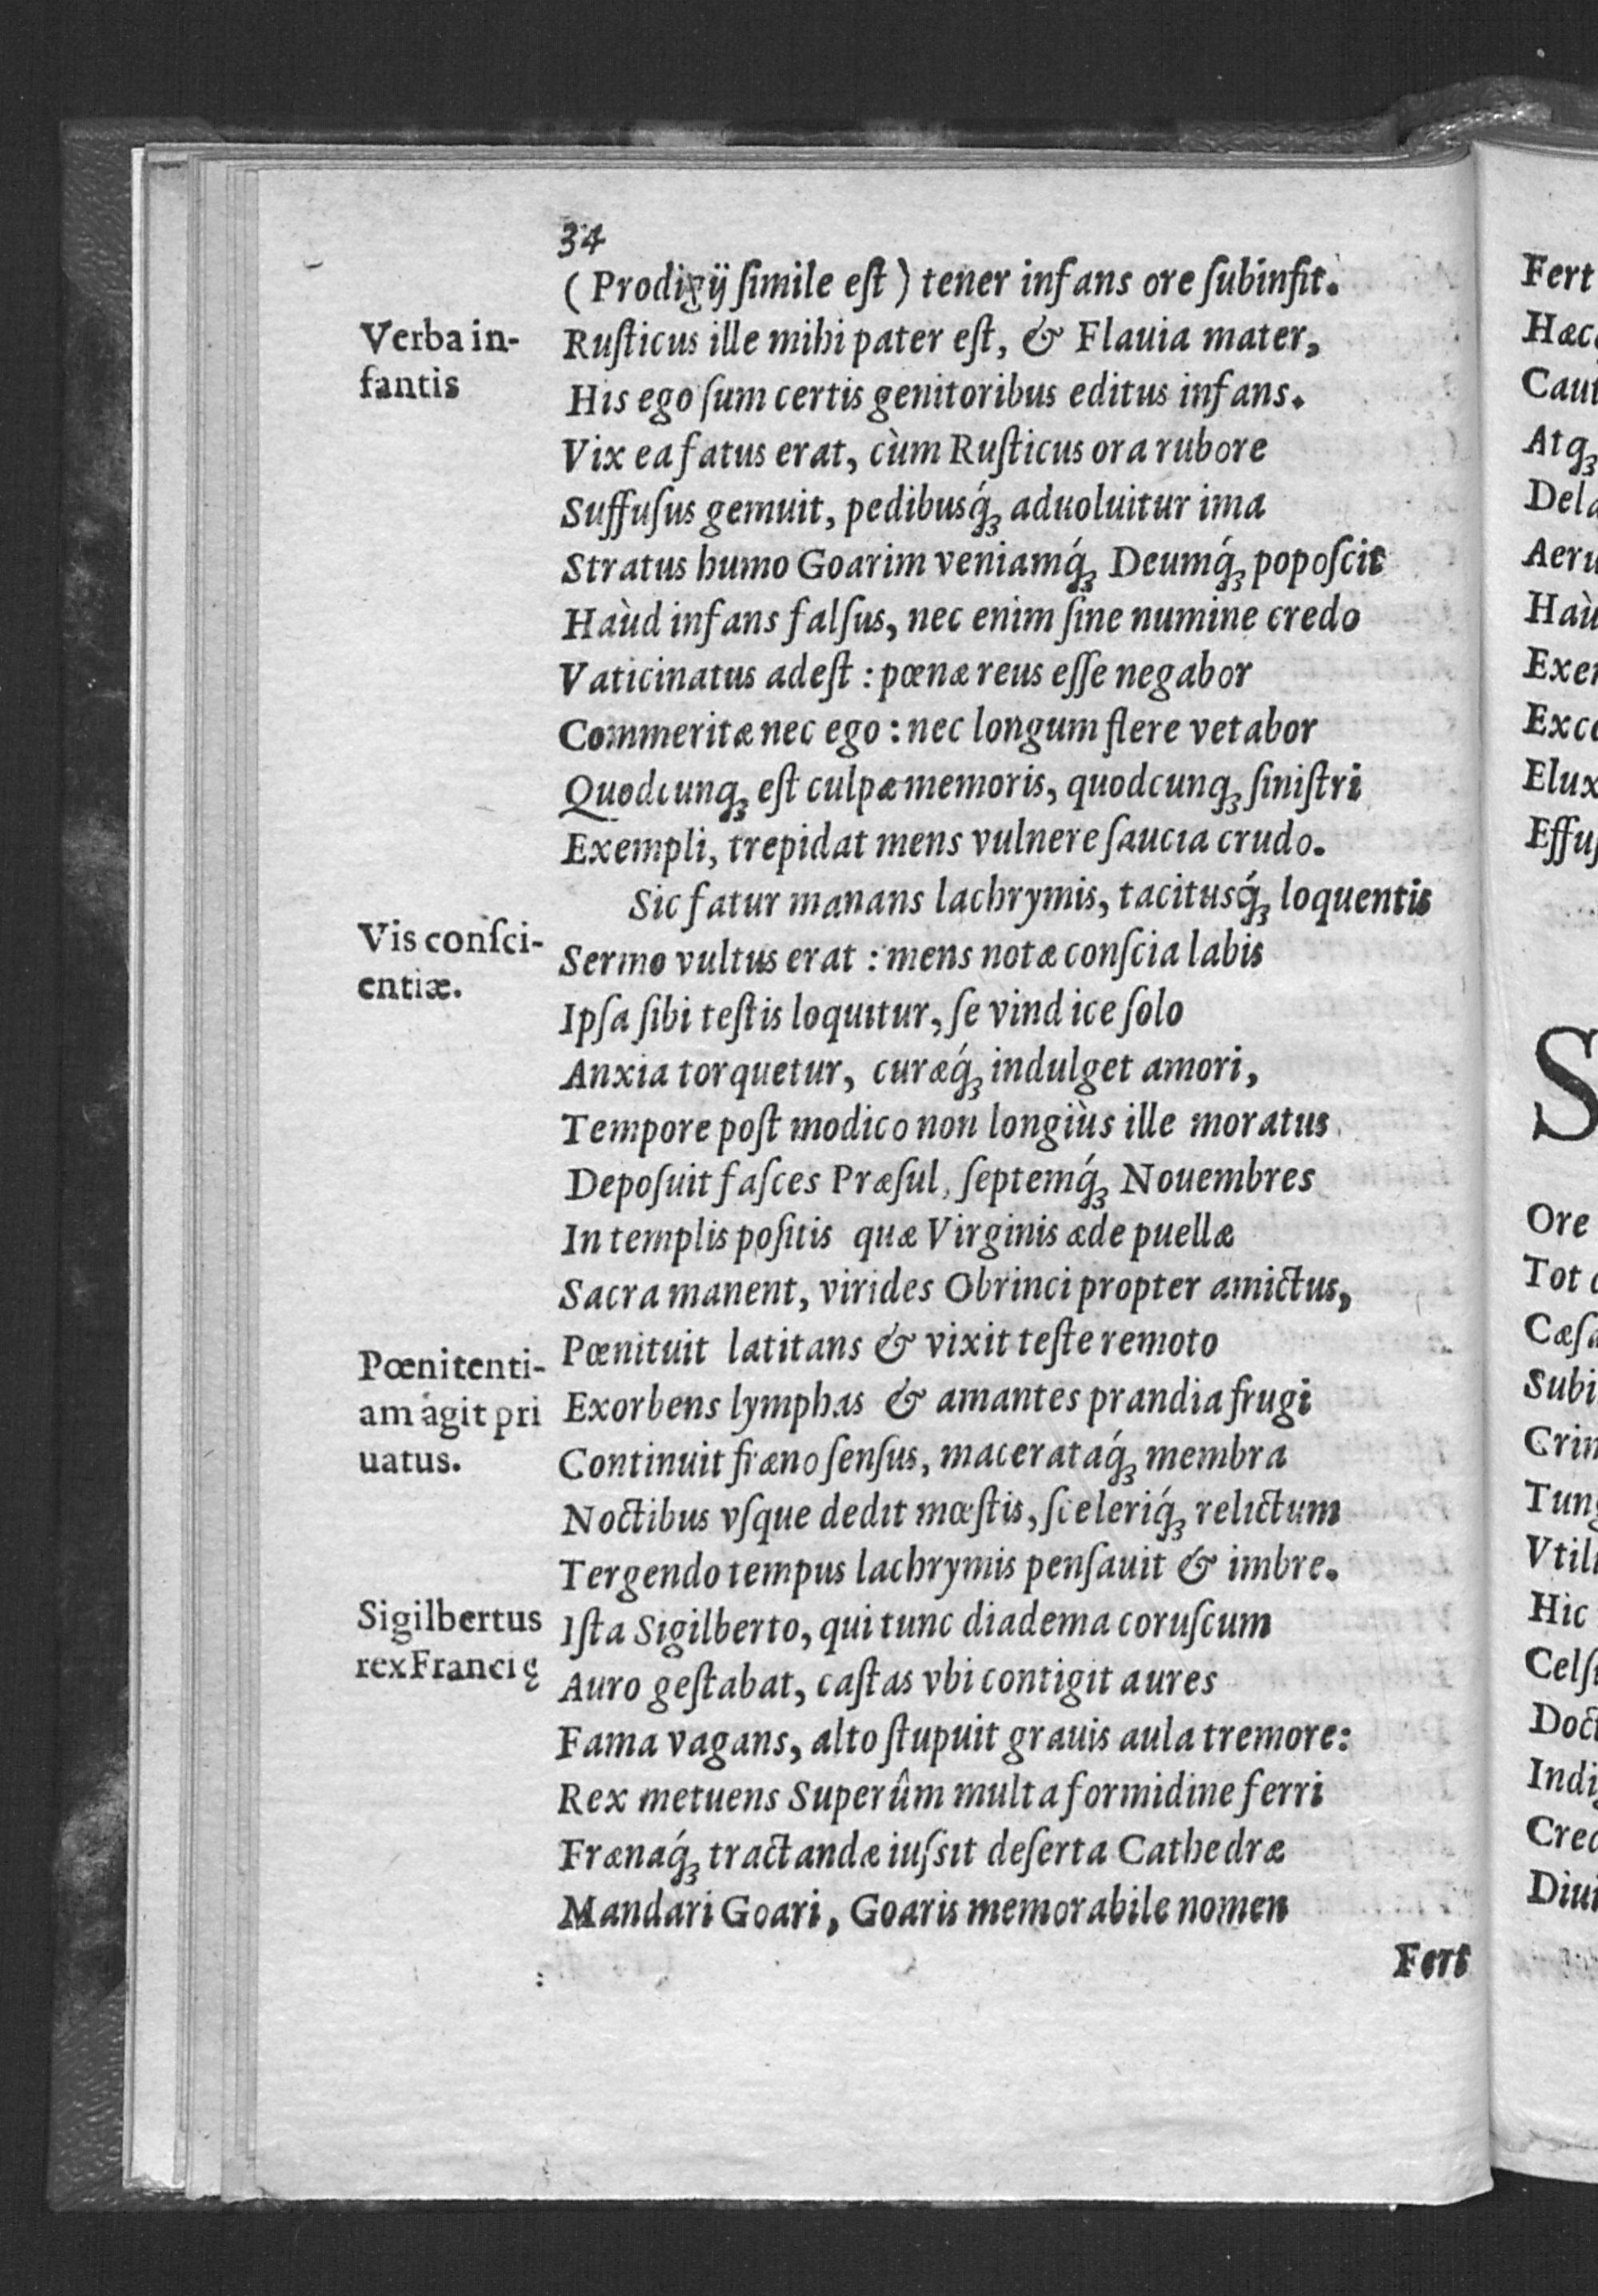 34
(Prodigij ſimile eſt) tener infans ore ſubinfit.
Verba in-
fantis
Ruſticus ille mihi pater eſt, & Flauia mater,
His ego ſum certis genitoribus editus infans.
Vix ea fatus erat, cùm Ruſticus ora rubore
Suffuſus gemuit, pedibusq́ꝫ aduoluitur ima
Stratus humo Goarim veniamq́ꝫ Deumq́ꝫ popoſcit
Haùd infans falſus, nec enim ſine numine credo
Vaticinatus adeſt : pœnæ reus eſſe negabor
Commeritæ nec ego : nec longum flere vetabor
Quodcunqꝫ eſt culpæ memoris, quodcunqꝫ ſiniſtri
Exempli, trepidat mens vulnere ſaucia crudo.
Sic fatur manans lachrymis, tacitusq́ꝫ loquentis
Vis conſci-
entiæ.
Sermo vultus erat : mens notæ conſcia labis
Ipſa ſibi teſtis loquitur, ſe vindice ſolo
Anxia torquetur, curæq́ꝫ indulget amori,
Tempore poſt modico non longiùs ille moratus
Depoſuit faſces Præſul, ſeptemq́ꝫ Nouembres
In templis poſitis quæ Virginis æde puellæ
Sacra manent, virides Obrinci propter amictus,
Pœnitenti-
am agit pri
uatus.
Pœnituit latitans & vixit teſte remoto
Exorbens lymphas & amantes prandia frugi
Continuit fræno ſenſus, macerataq́ꝫ membra
Noctibus vſque dedit mœſtis, ſceleriq́ꝫ relictum
Tergendo tempus lachrymis penſauit & imbre.
Sigilbertus
rex Francię
Iſta Sigilberto, qui tunc diadema coruſcum
Auro geſtabat, caſtas vbi contigit aures
Fama vagans, alto ſtupuit grauis aula tremore:
Rex metuens Superûm multa formidine ferri
Frænaq́ꝫ tractandæ iuſsit deſerta Cathedræ
Mandari Goari, Goaris memorabile nomen
Fert
Fert
Atqꝫ
Exer
Ore
Tot
Subi
Hic